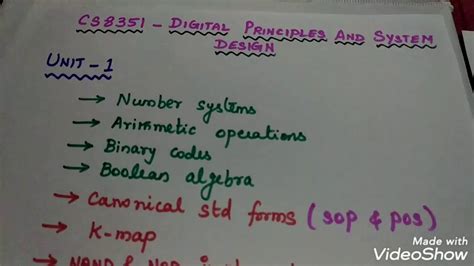 CS8351 - DIGITAL PRINCIPLES AND SYSTEM
DESIGN
UNIT-1
→ Number systems
→ Arithmetic operations
→ Binary codes
→ Boolean algebra
→ Canonical std forms (SOP & POS)
→ K-map
→ NAND & NOR
Made with
VideoShow